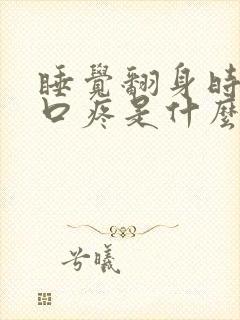 睡覺翻身時
口疼是什麼
兮曦